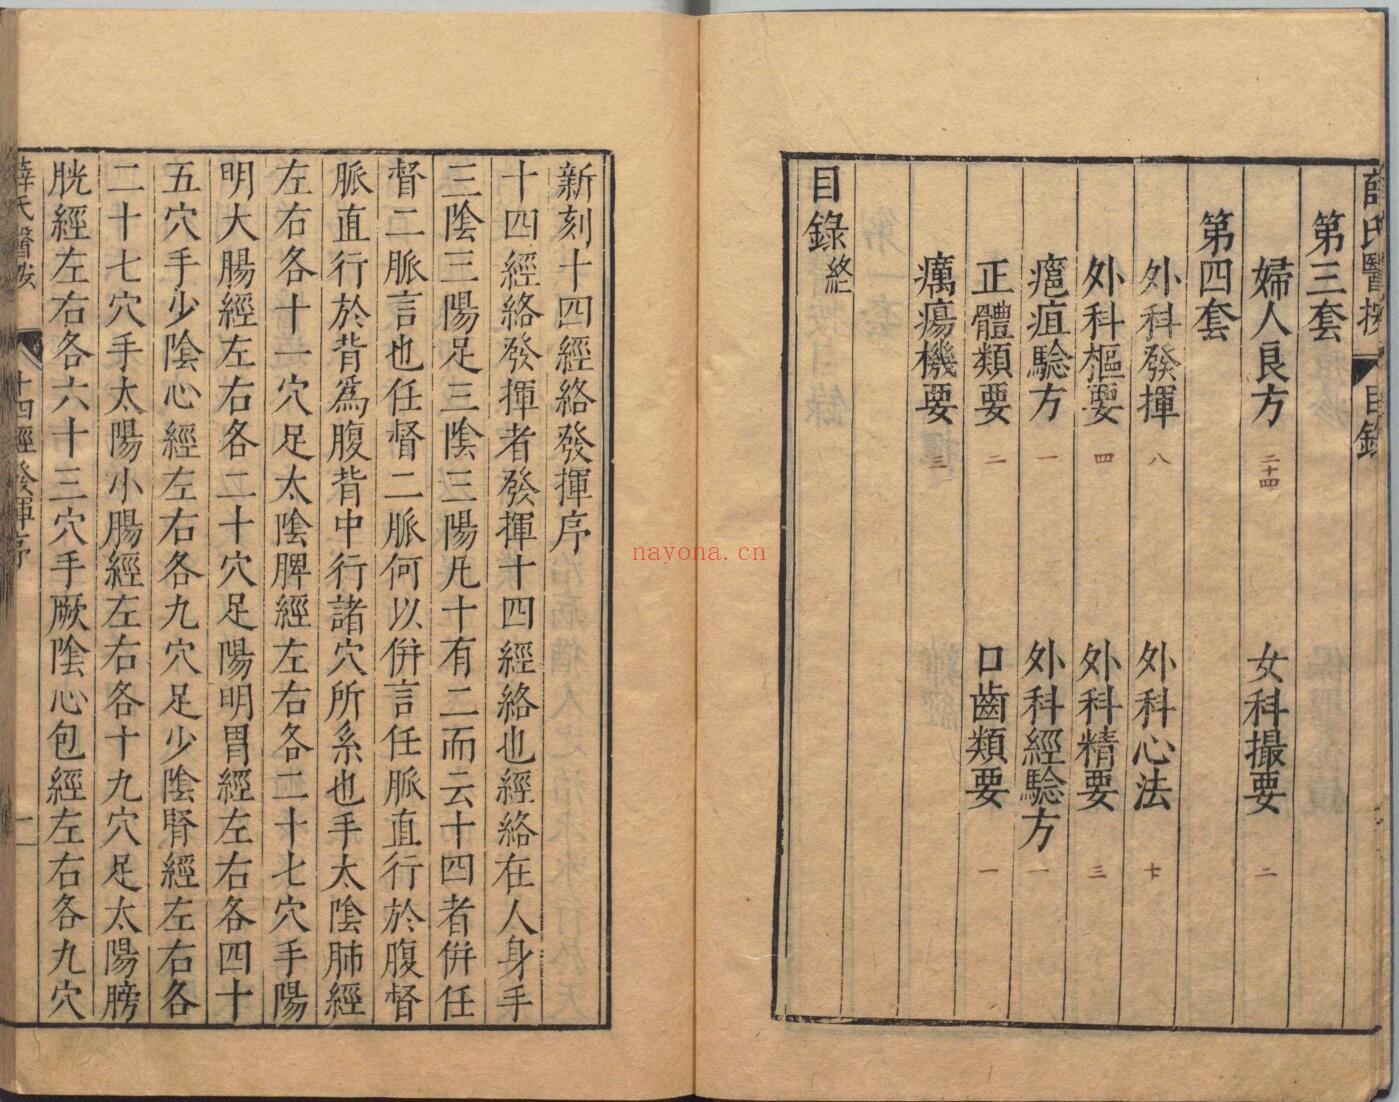 薛氏醫按 目錄
第三套
婦人良方 二十四 女科撮要 二
第四套
外科發揮 八 外科心法 七
外科樞要 四 外科精要 三
瘡疽驗方 一 外科經驗方 一
正體類要 二 口齒類要 一
癘瘍機要 三
目錄終
新刻十四經絡發揮序
十四經絡發揮者發揮十四經絡也經絡在人身手
三陰三陽足三陰三陽凡十有二而云十四者併任
督二脈言也任督二脈何以併言任脈直行於腹督
脈直行於背為腹背中行諸穴所系也手太陰肺經
左右各十一穴足太陰脾經左右各二十七穴手陽
明大腸經左右各二十穴足陽明胃經左右各四十
五穴手少陰心經左右各九穴足少陰腎經左右各
二十七穴手太陽小腸經左右各十九穴足太陽膀
胱經左右各六十三穴手厥陰心包經左右各九穴
薛氏醫按 十四經發揮序 一
nayona.cn